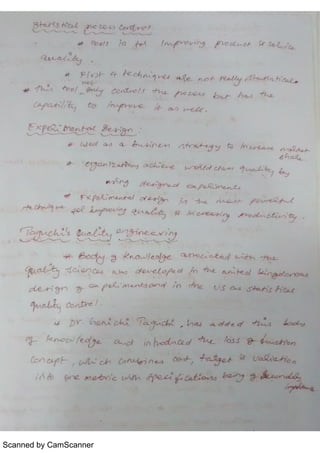 Statistical process control
* Tools to for improving product & service
quality.
* First 4 techniques are not really statistical.
* This tool not only controls the process but has the
capability to improve it as well.
Experimental Design :
* Used as a business strategy to increase market
share
* organizations achieve world class quality by
using designed experiments
* Experimental design is the most powerful
technique for improving quality & increasing productivity.
Taguchi's Quality engineering
* Body of knowledge associated with the
quality sciences was developed in the united kingdom as
design of experiments and in the US as statistical
quality control.
* Dr Genichi Taguchi, has added this body
of knowledge and introduced the loss function
concept, which combines cost, target & variation
into one metric with specifications being of secondary
importance
Scanned by CamScanner